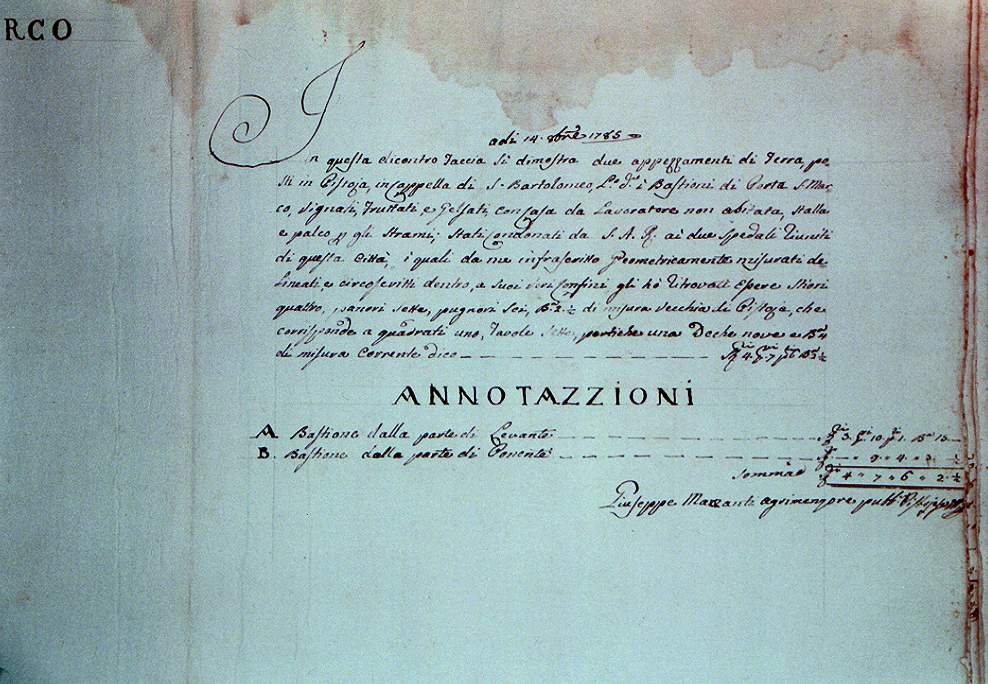 RCO
adi 14. 8bre 1785
In questa dicontro Faccia si dimostra due appezzamenti di Terra, po-
sti in Pistoja, in Cappella di S. Bartolomeo, L.o d.o i Bastioni di Porta S. Mar-
co, Vignati, Fruttati, e Gelsati, con Casa da Lavoratore non abitata, Stalla
e palco p gli Strami; Stati Condonati da S. A. R. ai due Spedali Riuniti
di questa Città, i quali da me infrascritto Geometricamente misurati de
Lineati, e circoscritti dentro, a Suoi Veri Confini gli hò Ritrovati Essere Stiori
quattro, panori Sette, pugnori Sei, Br. 2. ½ di misura Vecchia di Pistoja, che
corrisponde a quadrati uno, Tavole Sette, pertiche una Deche nove e Br. 4
di misura Corrente dico — Sti 4. pi 7. pi 6 Br. 2 ½
ANNOTAZZIONI
A. Bastione dalla parte di Levante — 3. 10. 1. Br. 13.
B. Bastione dalla parte di Ponente — 9 " 4 " ½
Sommae 4 " 7 " 6 " 2. ½
Giuseppe Mazzanti agrimensore pubb.